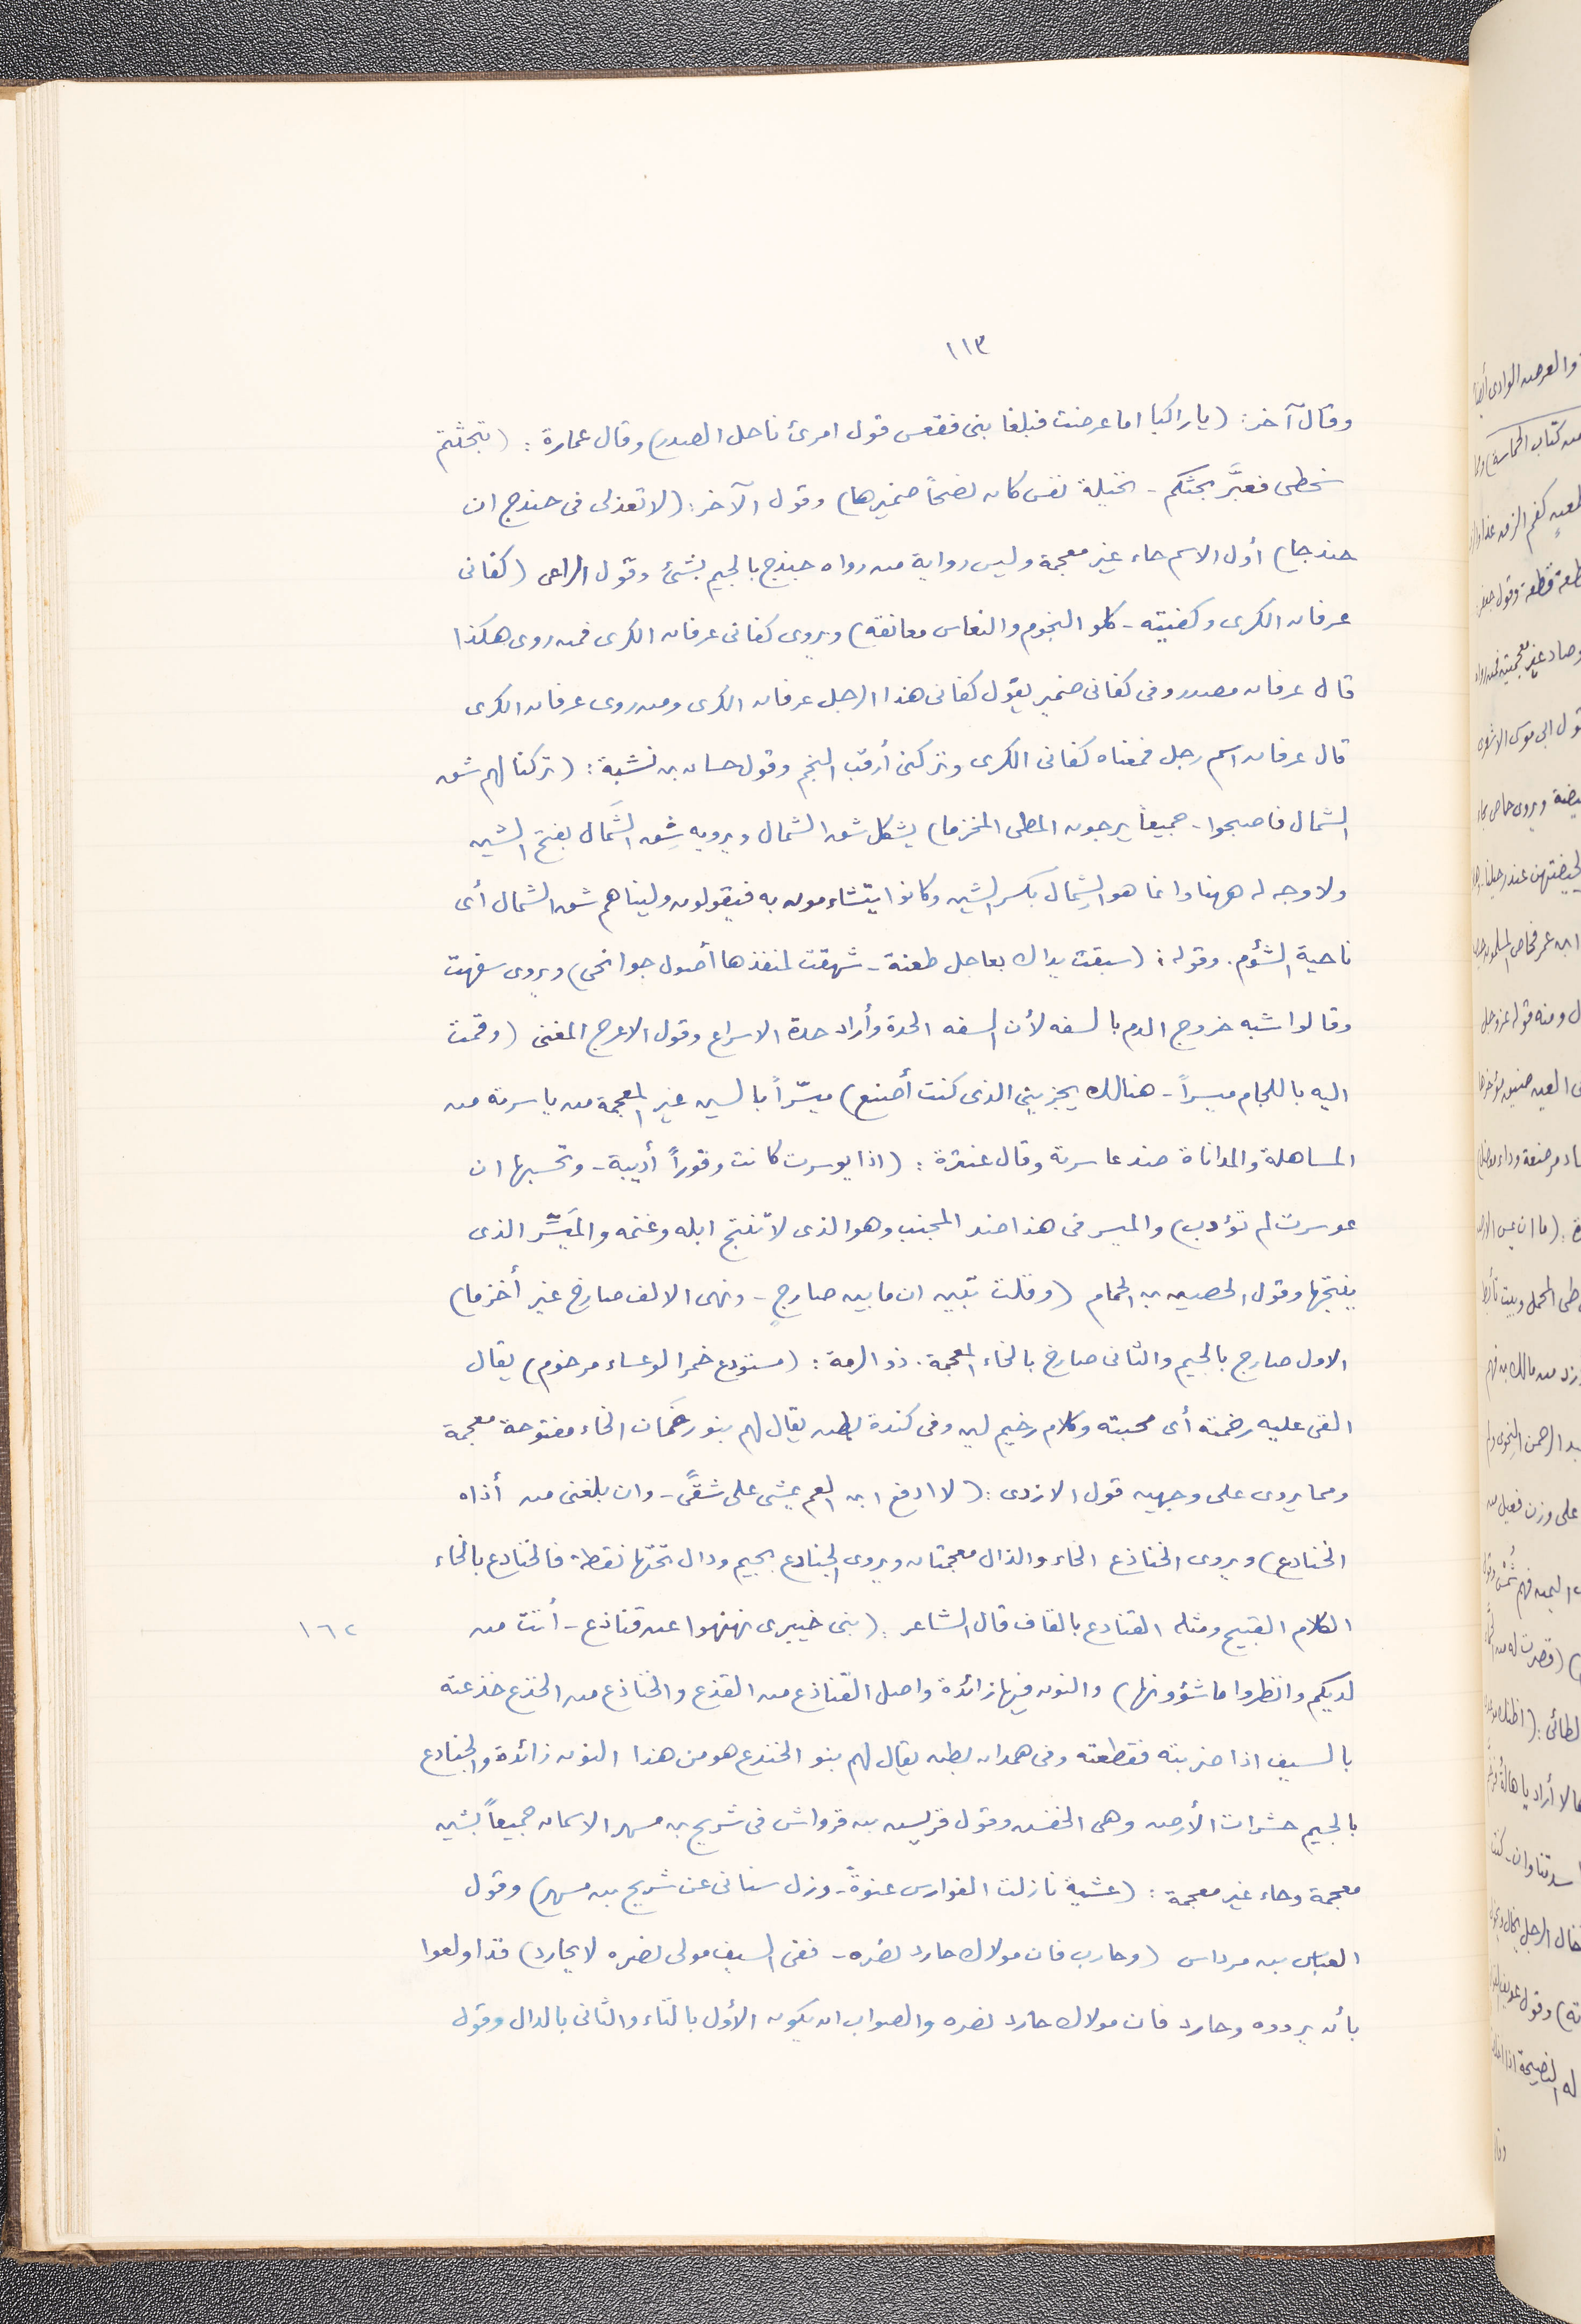 ١١٣
وقال آخر: (يا راكبا اما عرضت فبلغا بنى فقعس قول امرئ ناخل الصدر) وقال عمارة: (تبحثتم
سخطى فغيَّر بحثكم - نخيلة نفس كان نصحاً ضميرها) وقول الآخر: (لا تعذلى فى حندج ان
حندجا) أول الاسم حاء غير معجمة وليس رواية من رواه جندج بالجيم بشئ وقول الراعى (كفانى
عرفان الكرى وكفيته - كلو النجوم والنعاس معانقه) ويروى كفانى عرفان الكرى فمن روى هكذا
قال عرفان مصدر وفى كفانى ضمير يقول كفانى هذا الرجل عرفان الكرى ومن روى عرفان الكرى
قال عرفان اسم رجل فمعناه كفانى الكرى وتركنى أرقب النجم وقول حسان بن نشبة: (تركنا لهم شق
الشمال فاصبحوا - جميعاً يرجون المطى المخزما) يشكل شق الشمال ويرويه شِق الشَمال بفتح الشين
ولا وجه له ههنا وانما هو الشِمال بكسر الشين وكانوا يتشاءمون به فيقولون ولينا هم شق الشمال أى
ناحية الشؤم. وقوله: (سبقت يداك بعاجل طعنة - شهقت لمنفذها أصول جوانحى) ويروى سفهت
وقالوا شبه خروج الدم بالسفه لأن السفه الحدة وأراد حدة الاسراع وقول الاعرج المغنى (وقمت
اليه باللجام ميسراً - هنالك يجزينى الذى كنت أصنع) ميسّراً بالسين غير المعجمة من ياسرته من
المساهلة والمداناة ضد عاسرته وقال عنترة: (اذا يوسرت كانت وقوراً أديبة - وتحسبها ان
عوسرت لم تؤدب) والميسر فى هذا ضد المجنب وهو الذى لا تنتج ابله وغنمه والمَيَسِّر الذى
ينتجها وقول الحصين بن الحمام (وقلت تبين ان ما بين ضارجٍ - ونهى الالف صارخ غير أخزما)
الاول ضارج بالجيم والثانى صارخ بالخاء المعجمة. ذو الرمة: (مستودع خمر الوعساء مرخوم) يقال
القى عليه رخمته أى محبته وكلام رخيم لين وفى كندة بطن يقال لهم بنو رخَمَان الخاء مفتوحة معجمة
ومما يروى على وجهين قول الازدى: (لا ادفع ابن العم يمشى على شقًى - وان بلغنى من أذاه
الخنادع) ويروى الخناذع الخاء والذال معجمتان ويروى الجنادع بجيم ودال تحتها نقطة فالخنادع بالخاء
الكلام القبيح ومثله القنادع بالقاف قال الشاعر: (بنى خيبرى نهنهوا عن قناذع - أتت من
١٦٢
لديكم وانظروا ما شؤونها) والنون فيها زائدة واصل القناذع من القذع والخناذع من الخذع خذعته
بالسيف اذا ضربته فقطعته وفى همدان بطن يقال لهم بنو الخنذع هو من هذا النون زائدة والجنادع
بالجيم حشرات الأرض وهى الخفس وقول قريس بن قرواش فى شريح بن مسهر الاسمان جميعاً بشين
معجمة وحاء غير معجمة: (عشية نازلت الفوارس عنوةً - وزل سنانى عن شريح بن مسهر) وقول
العباس بن مرداس (وحارب فان مولاك حارد نصره - ففى السيف مولى نصره لا يحارد) قد اولعوا
بأن يرووه وحارد فان مولاك حارد نصره والصواب ان يكون الأول بالباء والثانى بالدال وقول